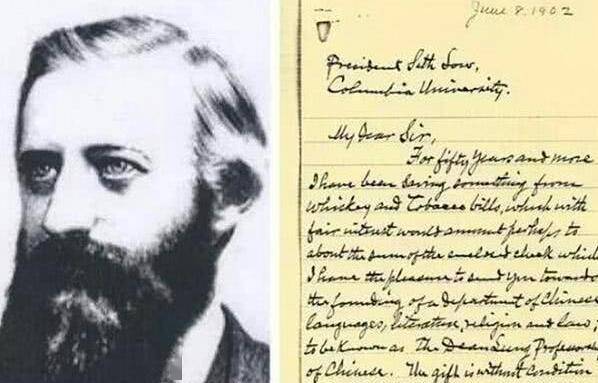 June 8. 1902
President Seth Low,
Columbia University.
My Dear Sir,
For fifty years and more
I have been saving something from
whiskey and Tobacco bills, which with
fair interest would amount perhaps to
about the sum of the enclosed check which
I have the pleasure to send you towards
the founding of a department of Chinese
languages, literature, religion and law;
to be known as The Dean Lung Professorship
of Chinese. The gift is without condition